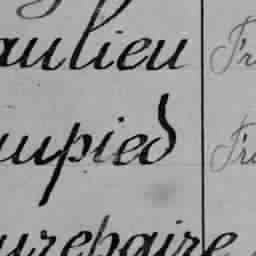 aulieu Fr
upied Fr
urepaire